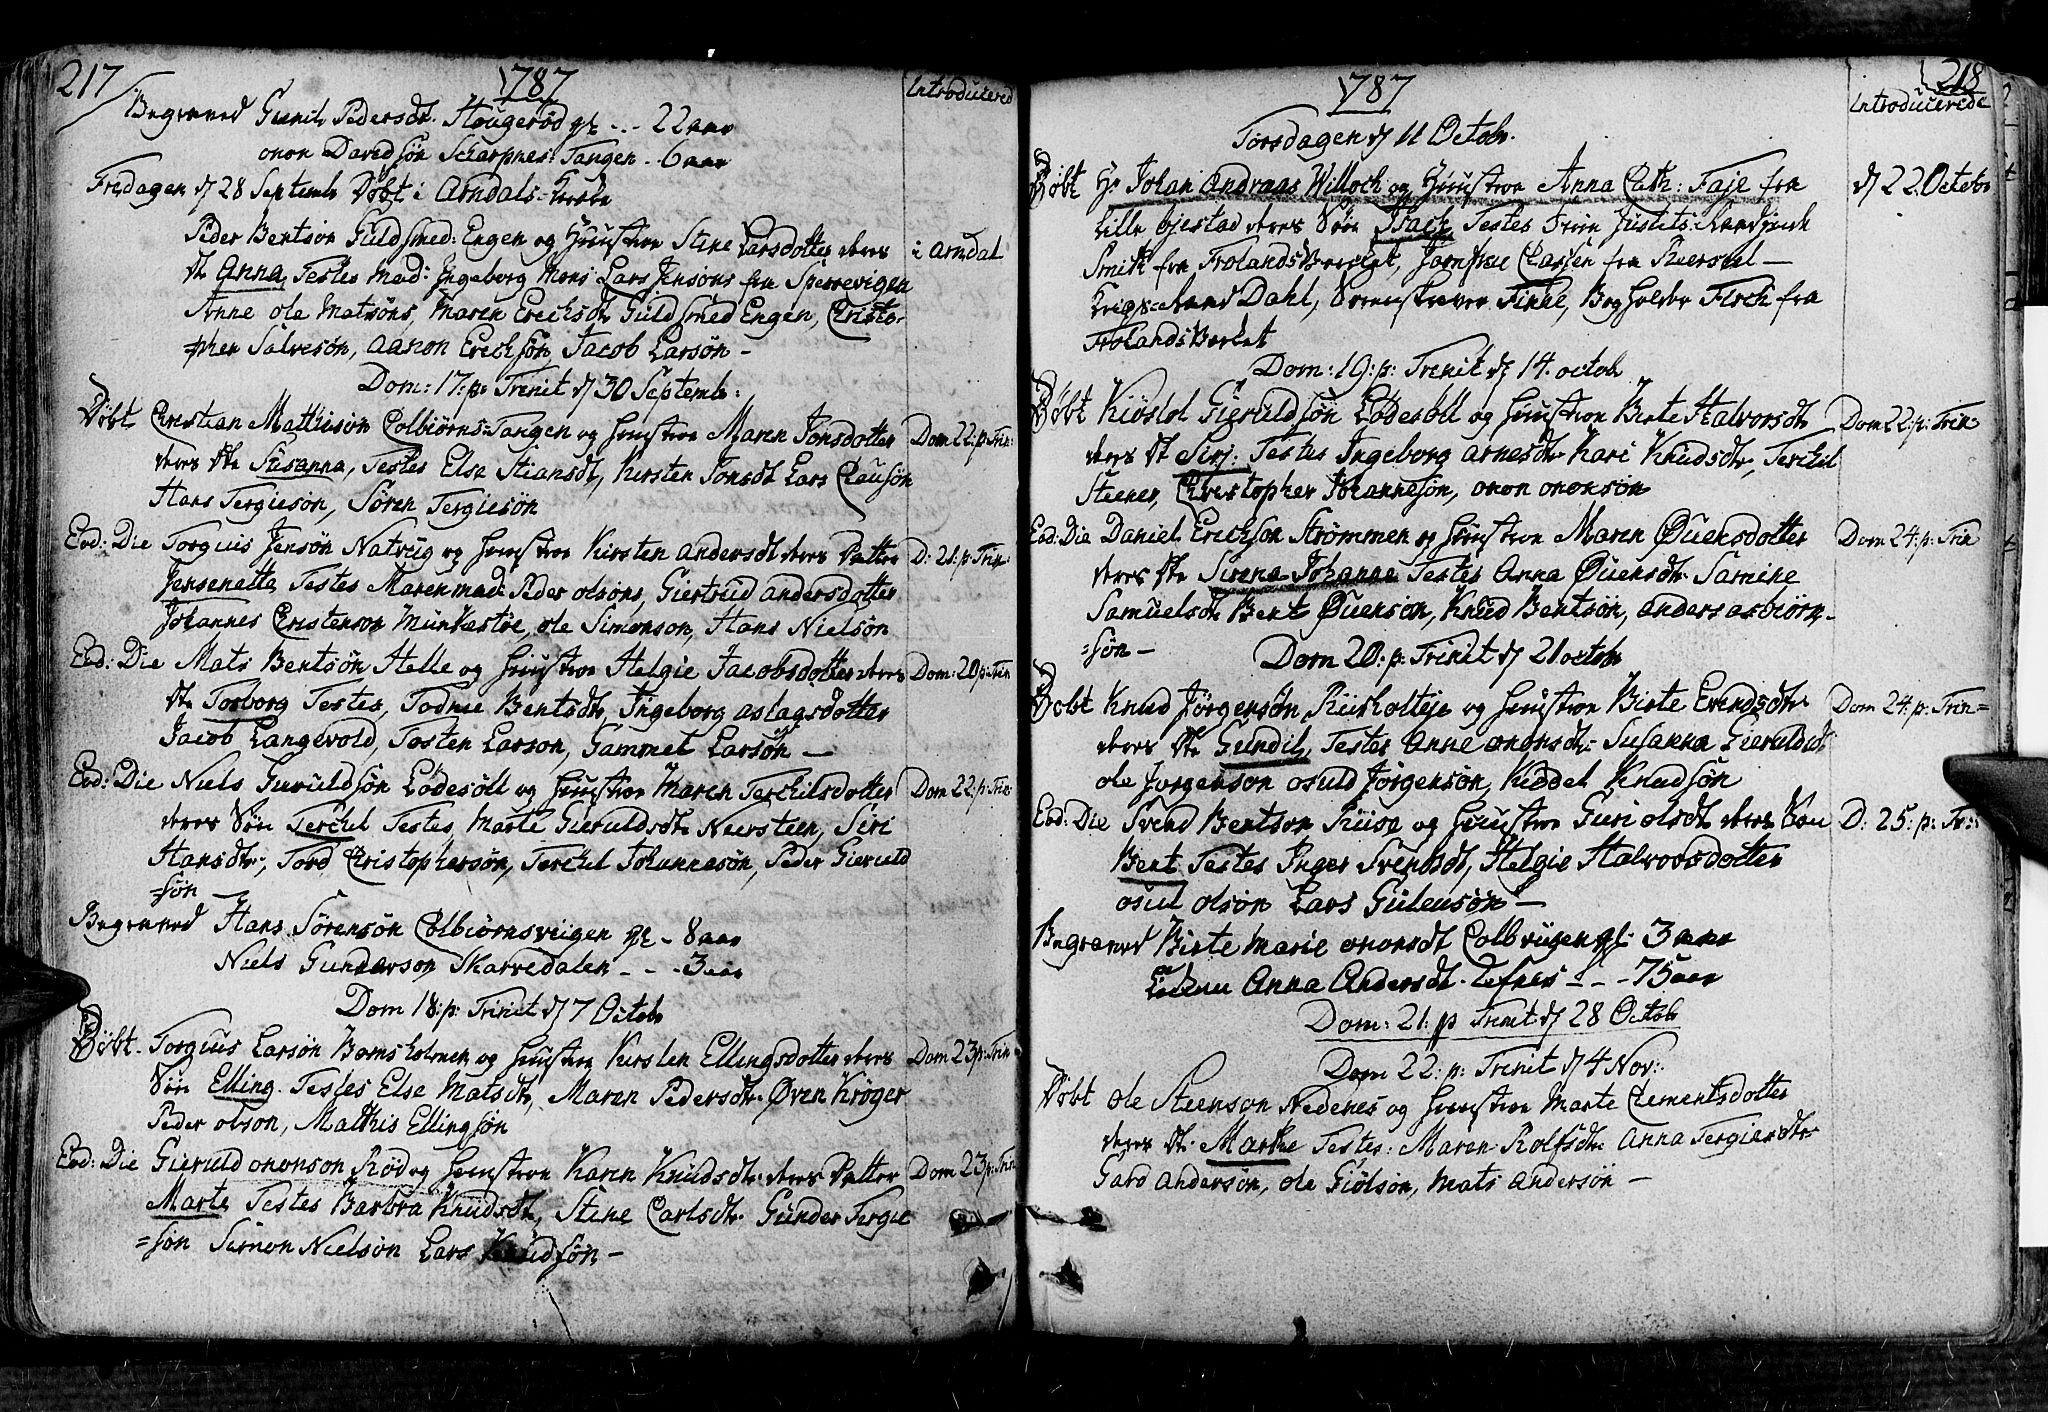 217
1787
Introducered
Begraved Gunil Pedersdt. Hougerød gl. - - 22 aar
onon Davidsøn Scharpnes Tangen - - 6 aar
Fredagen d 28 Septemb Døbt i Arndals Kirke
Peder Bentsøn Guldsmed: Engen og Hustroe Stine Larsdotter deres
i Arndal
dt Anna Testes Mad: Ingeborg Mons Lars Jensøns fra Sperrevigen
Anne ole Matsøns, Maren Ericksdt Guldsmed Engen, Christo-
pher Salvesøn, aanon Ericksøn, Jacob Larsøn -
Dom: 17: p: Trinit d 30 Septemb:
Døbt Christian Mathison Colbiørns-Tangen og Hustroe Maren Jonsdotter
Dom 22: p: Trin:
deres dte Susanna, Testes Else Stiansdt, Kirsten Jonsdt Lars Clausøn
Hans Tergiesøn, Søren Tergiesøn
Eod: Die Torguis Jensøn Natvig og Hustroe Kirsten Andersdt deres Datter
D: 21: p: Trin:
Jensenetta Testes Maren mad: Peder olsøns, Giertrud andersdotter
Johannes Christensøn Munkestøe, ole Simonson, Hans Nielsøn
Eod: Die Mats Bentsøn Helle og Hustroe Helgie Jacobsdotter deres
Dom: 20 p: Trin
dte Torborg Testes, Todnie Bentsdt, Ingeborg aslagsdotter
Jacob Langevold, Tosten Larson, Gammel Larsøn -
Eod: Die Niels Gieruldsøn Lødesøll og Hustroe Maren Terchilsdotter
Dom 22: p: Trin
deres Søn Terchel Testes, Marte Gieruldsdtr Neersteen, Siri
Hansdt, Tord Christophersøn, Terchel Johannesøn, Peder Gieruld
=søn
Begraved Hans Sørensøn Colbiørnsveigen gl - 8 aar
Niels Gundersøn Skarvedalen - - - 3 aar
Dom 18: p: Trinit d 7 Octob
Døbt Torguis Larsøn Bomsholmen og Hustroe Kirsten Ellingsdotter deres
Dom 23 p: Trin
Søn Elling. Testes Else Matsdt, Maren Pedersdt. Øven Krøger
Peder olson, Mathis Ellingsøn
Eod: Die Gieruld ononson Rød og Hustroe Karen Knudsdt. deres Datter
Dom 23 p: Trin
Marte Testes Barbra Knudsdt, Stine Carlsdt. Gunder Tergie
=søn Simon Nielsøn Lars Knudsøn -
218
1787
Introducerede
Torsdagen d 11 Octob.
Døbt Hr Johan Andreas Willoch og Hustroe Anna Cath: Faje fra
d 22 Octobr
Lille Giestad deres Søn Isach Testes Frue Justits:Raadinde
Smith fra Frolands Verket, Jomfrue Classen fra Puersdal -
Krigs-Raad Dahl, Sorenskriver Finne, Bogholder Fisch fra
Frolands Verket
Dom: 19: p: Trinit d 14. octob
Døbt Kiøstol Gieruldsøn Lødesøll og Hustroe Birte Halvorsdt
Dom 22: p: Trin
deres dt Sirj. Testes Ingeborg arnesdt. Kari Knudsdt, Terchil
Steener, Christopher Johannesøn, onon ononsøn
Eod: Die Daniel Erickson Strømmen og Hustroe Maren Øuensdotter
Dom 24: p: Trin
deres dte Sirena Johanne Testes Anna Øuensdt. Samine
Samuelsdt Bent Øuensøn, Knud Bentsøn, anders asbiørn-
=søn -
Dom 20: p: Trinit d 21 octob
Døbt Knud Jörgensøn Riisholteje og Hustroe Birte Evendsdt
Dom 24: p: Trin=
deres dte Gundil, Testes Anne ononsdt. Susanna Gieruldsdt
ole Jorgenson osuld Jörgensøn, Keddel Knudsøn
Eod: Die Svend Bentson Riise og Hustroe Guri olsdt deres Søn
D: 25: p: Tr:
Bent Testes Inger Svendsdt, Helgie Halvorsdotter
osul olsøn Lars Gulensøn -
Begraved Birte Marie ononsdt Colbriigen gl. 3 aar
Enken Anna Andersdt. Lefnes - - - 75 aar
Dom: 21: p Trinit d 28 Octob
Dom 22: p: Trinit d 4 Nov:
Døbt ole Steenson Nedenes og Hustroe Marte Clementsdotter
deres dt. Marthe Testes: Maren Rolfsdt. Anna Tergiesdt.
Gard Andersøn, ole Giølsøn, Mats Andersøn -